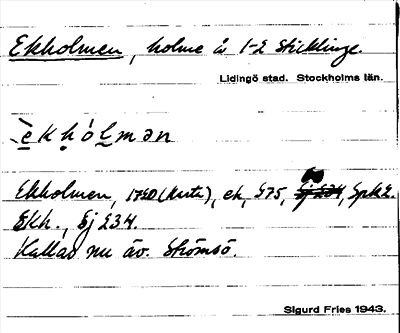 Ekholmen, holme å 1-2 Sticklinge
Lidingö stad. Stockholms län.
èkhólmən
Ekholmen, 1750 (karta), ek, S75, Spk 2.
Ekh., Sj 234.
Kallas nu äv. Strömsö.
Sigurd Fries 1943.